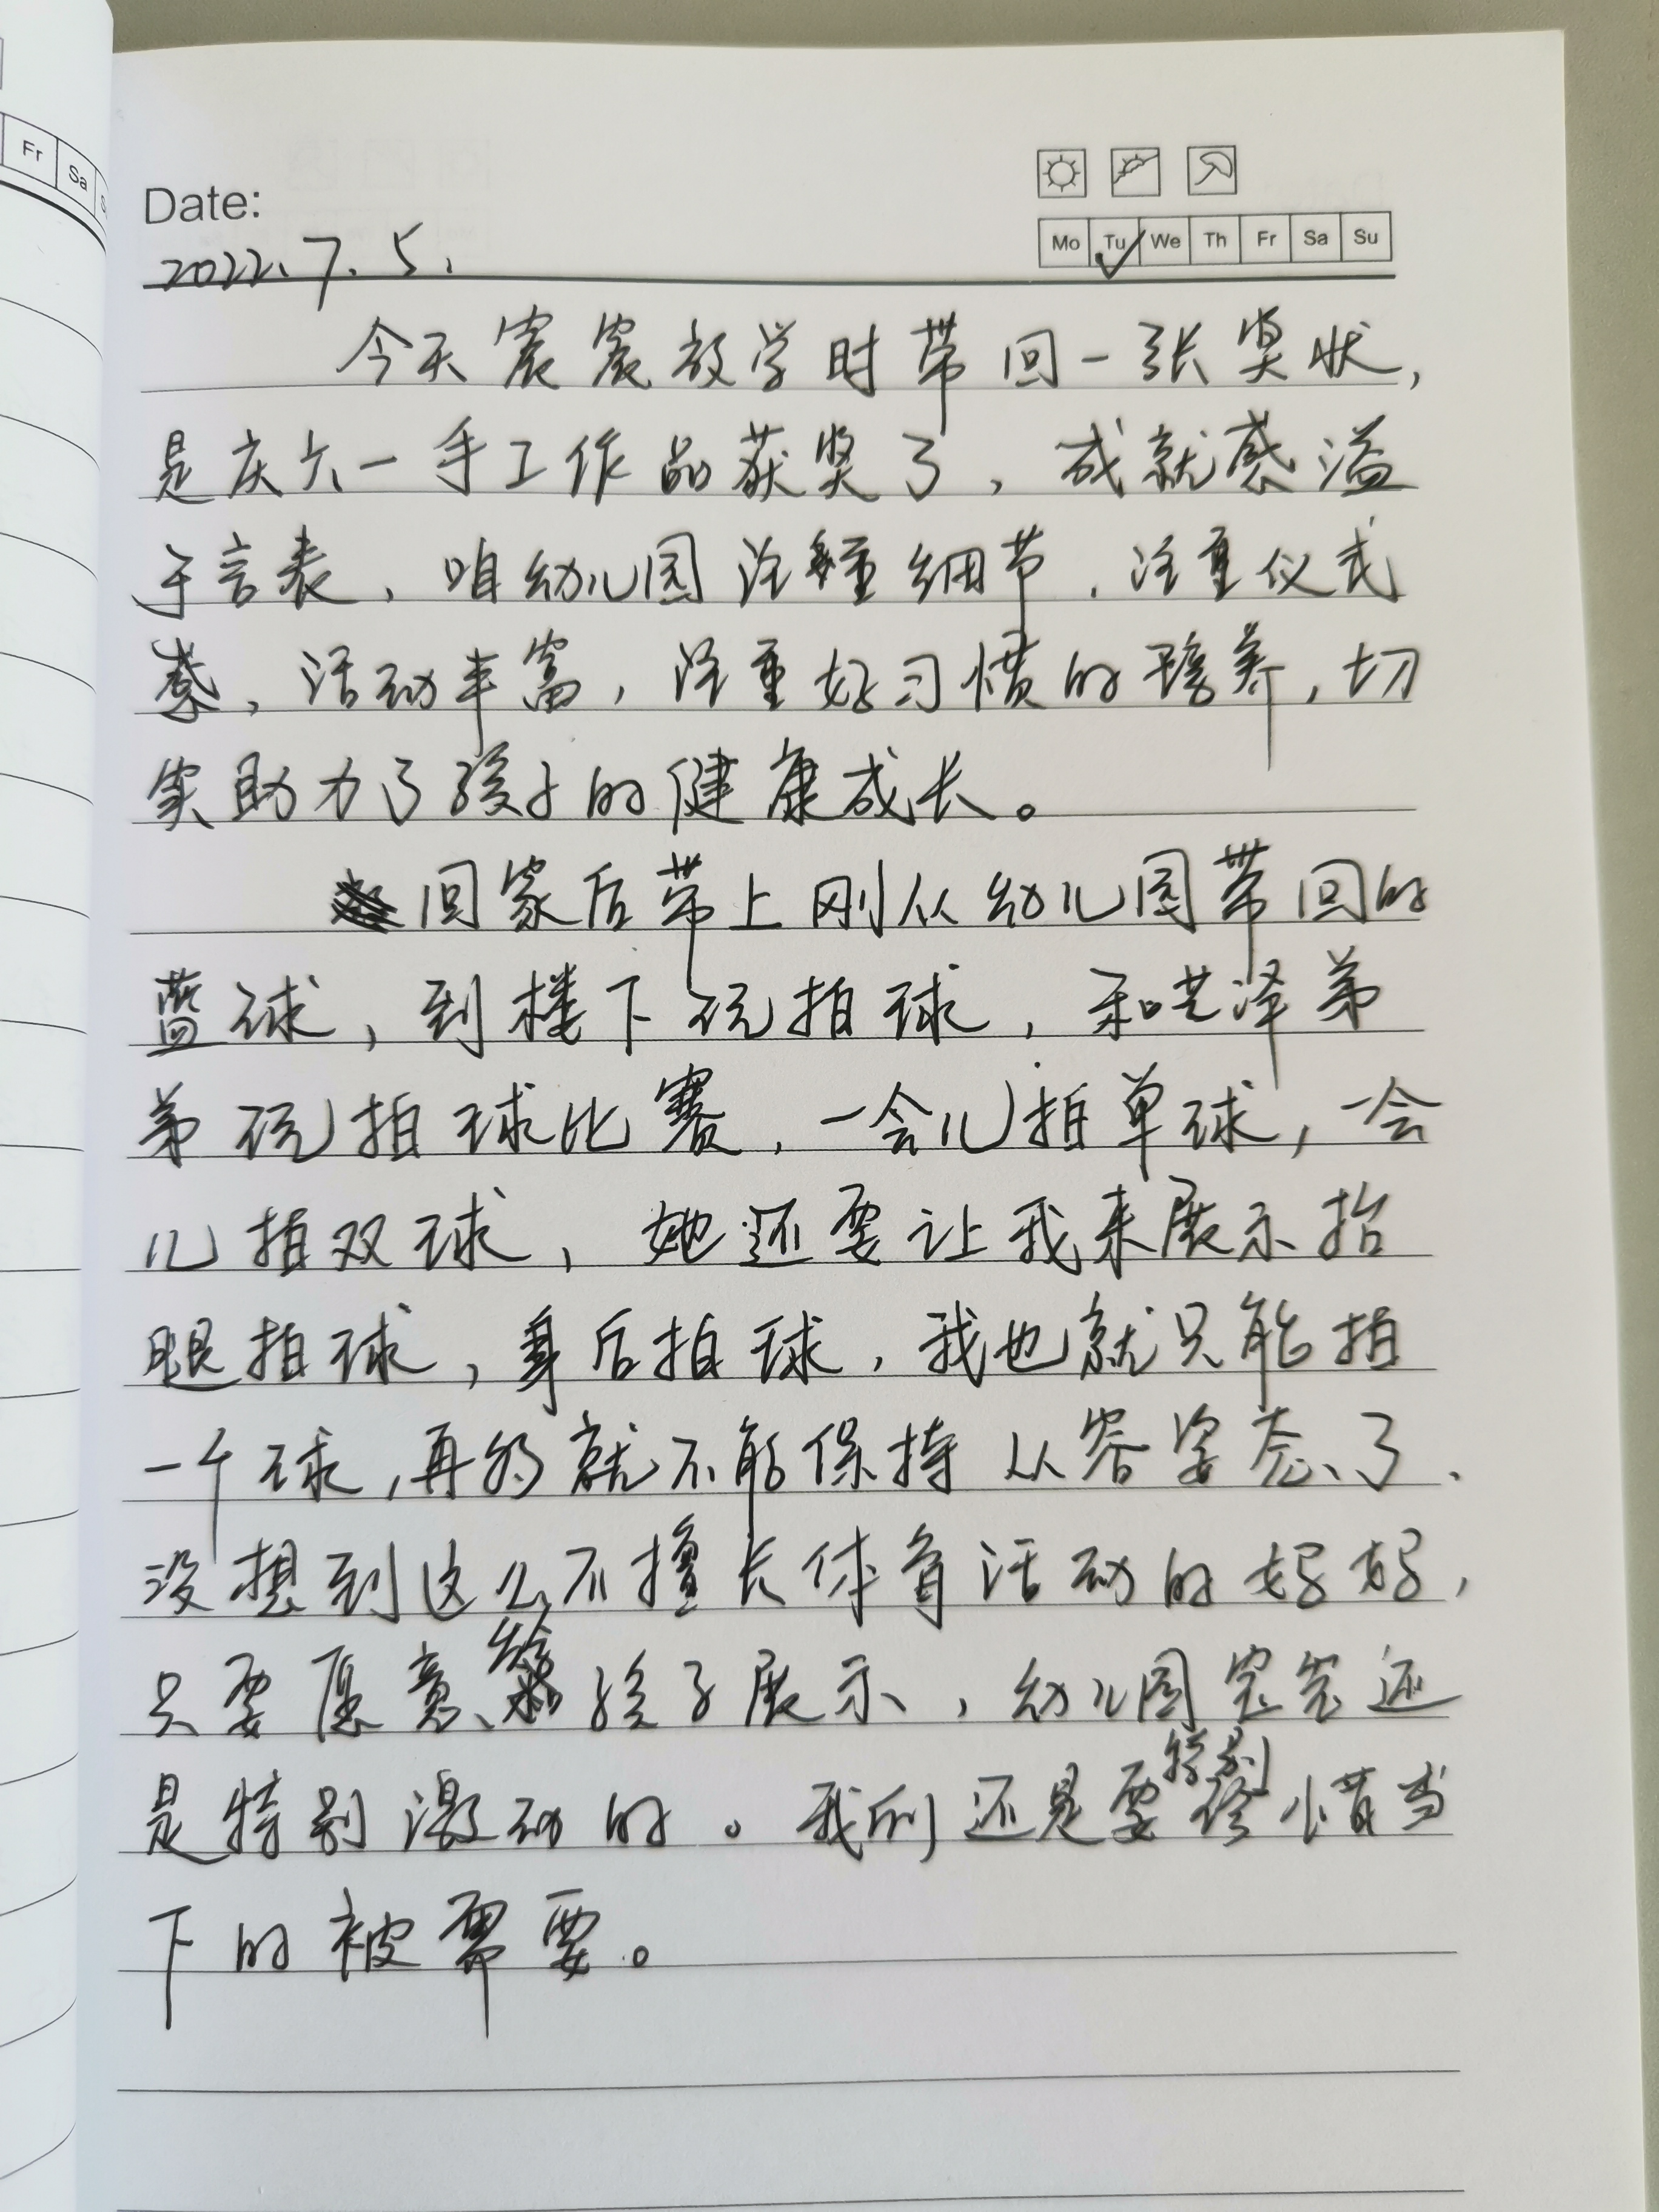 Fr Sa
Date:
2022.7.5.
Mo Tu We Th Fr Sa Su
今天宸宸放学时带回一张奖状,
是庆六一手工作品获奖了,成就感溢
于言表、咱幼儿园注重细节,注重仪式
感、活动丰富,注重好习惯的培养,切
实助力了孩子的健康成长。
回家后带上刚从幼儿园带回的
蓝球,到楼下玩拍球,和艺泽弟
弟玩拍球比赛,一会儿拍单球,一会
儿拍双球,她还要让我来展示抬
腿拍球,身后拍球,我也就只能拍
一个球,再多就不能保持从容姿态了、
没想到这么不擅长体育活动的妈妈,
只要愿意给孩子展示,幼儿园宝宝还
是特别激动的。我们还是要特别珍惜当
下的被需要。